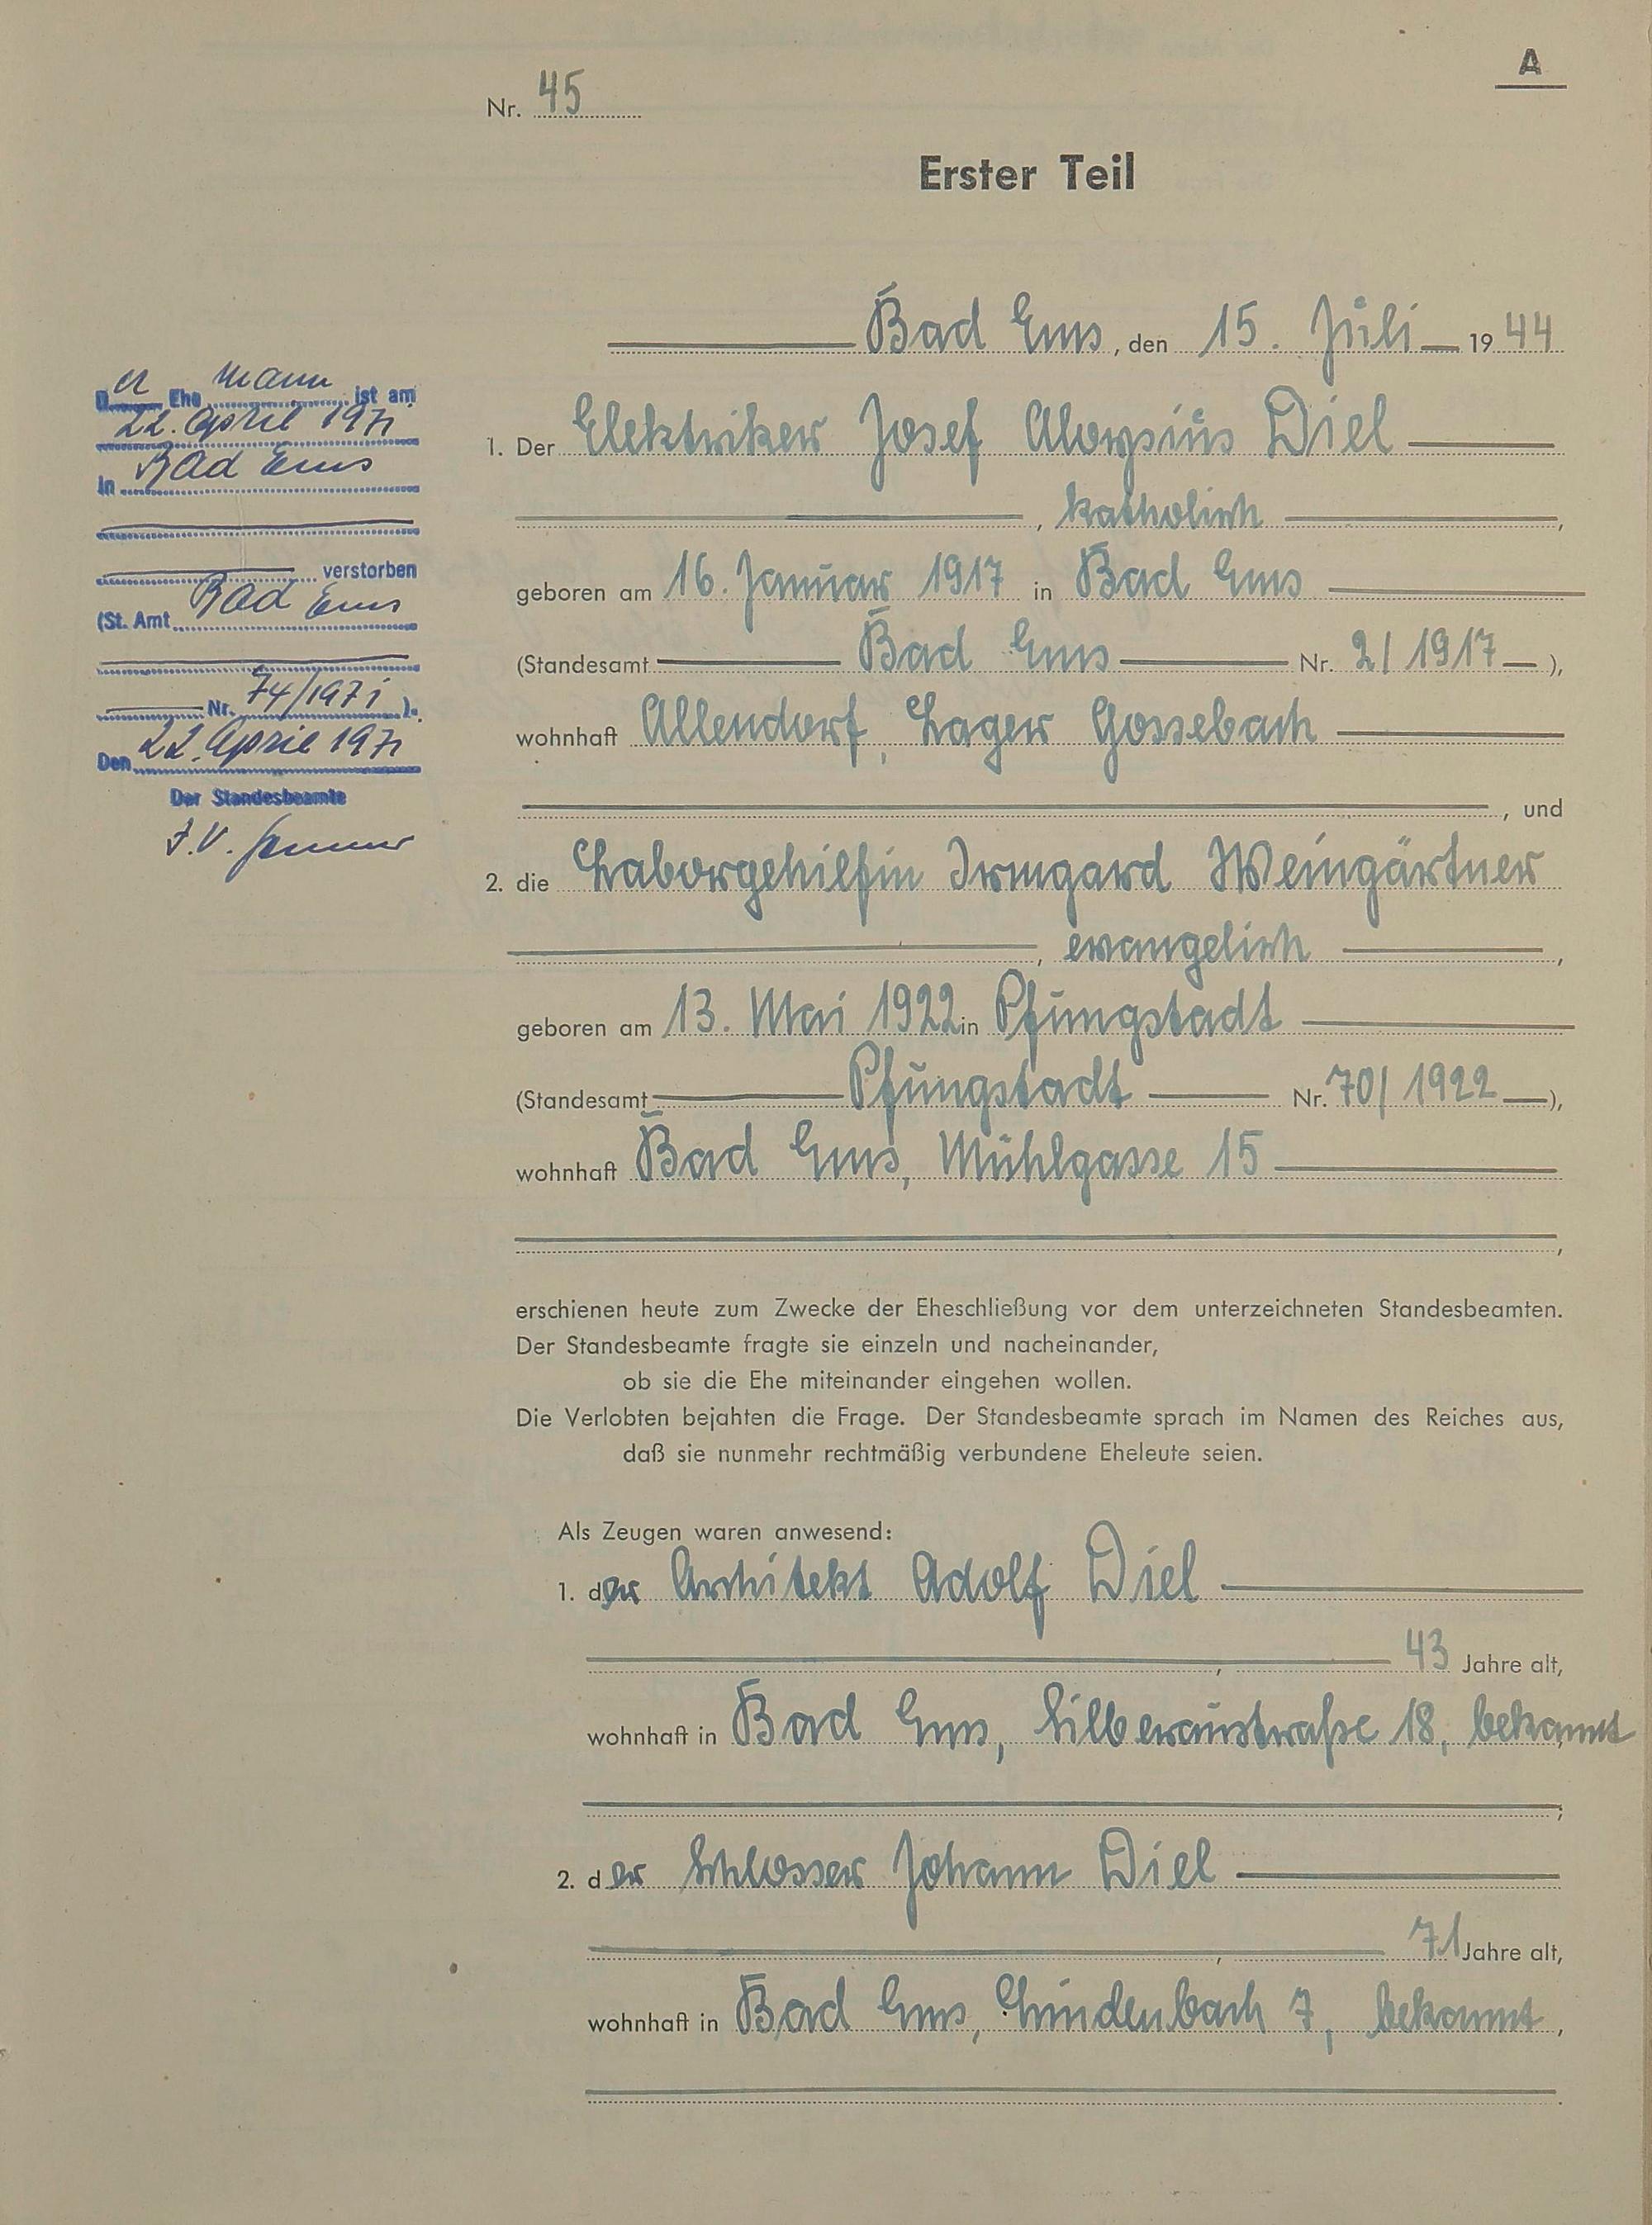 A
Nr. 45
Erster Teil
Bad Ems, den 15. Juli 1944
1. Der Elektriker Josef Aloysius Diel
, katholisch ,
geboren am 16. Januar 1917 in Bad Ems
(Standesamt Bad Ems Nr. 2/1917 ),
wohnhaft Allendorf, Lager Gossebach
, und
2. die Laborgehilfin Irmgard Weingärtner
, evangelisch ,
geboren am 13. Mai 1922 in Pfungstadt
(Standesamt Pfungstadt Nr. 70/1922 ),
wohnhaft Bad Ems, Mühlgasse 15
,
erschienen heute zum Zwecke der Eheschließung vor dem unterzeichneten Standesbeamten.
Der Standesbeamte fragte sie einzeln und nacheinander,
ob sie die Ehe miteinander eingehen wollen.
Die Verlobten bejahten die Frage. Der Standesbeamte sprach im Namen des Reiches aus,
daß sie nunmehr rechtmäßig verbundene Eheleute seien.
Als Zeugen waren anwesend:
1. der Architekt Adolf Diel
, 43 Jahre alt,
wohnhaft in Bad Ems, Silberaustraße 18, bekannt
;
2. der Schlosser Johann Diel
, 71 Jahre alt,
wohnhaft in Bad Ems, Lindenbach 7, bekannt,
.
Der Ehe mann ist am
22. April 1971
in Bad Ems
verstorben
(St. Amt Bad Ems
Nr. 74/1971 ).
Den 22. April 1971
Der Standesbeamte
I.V.